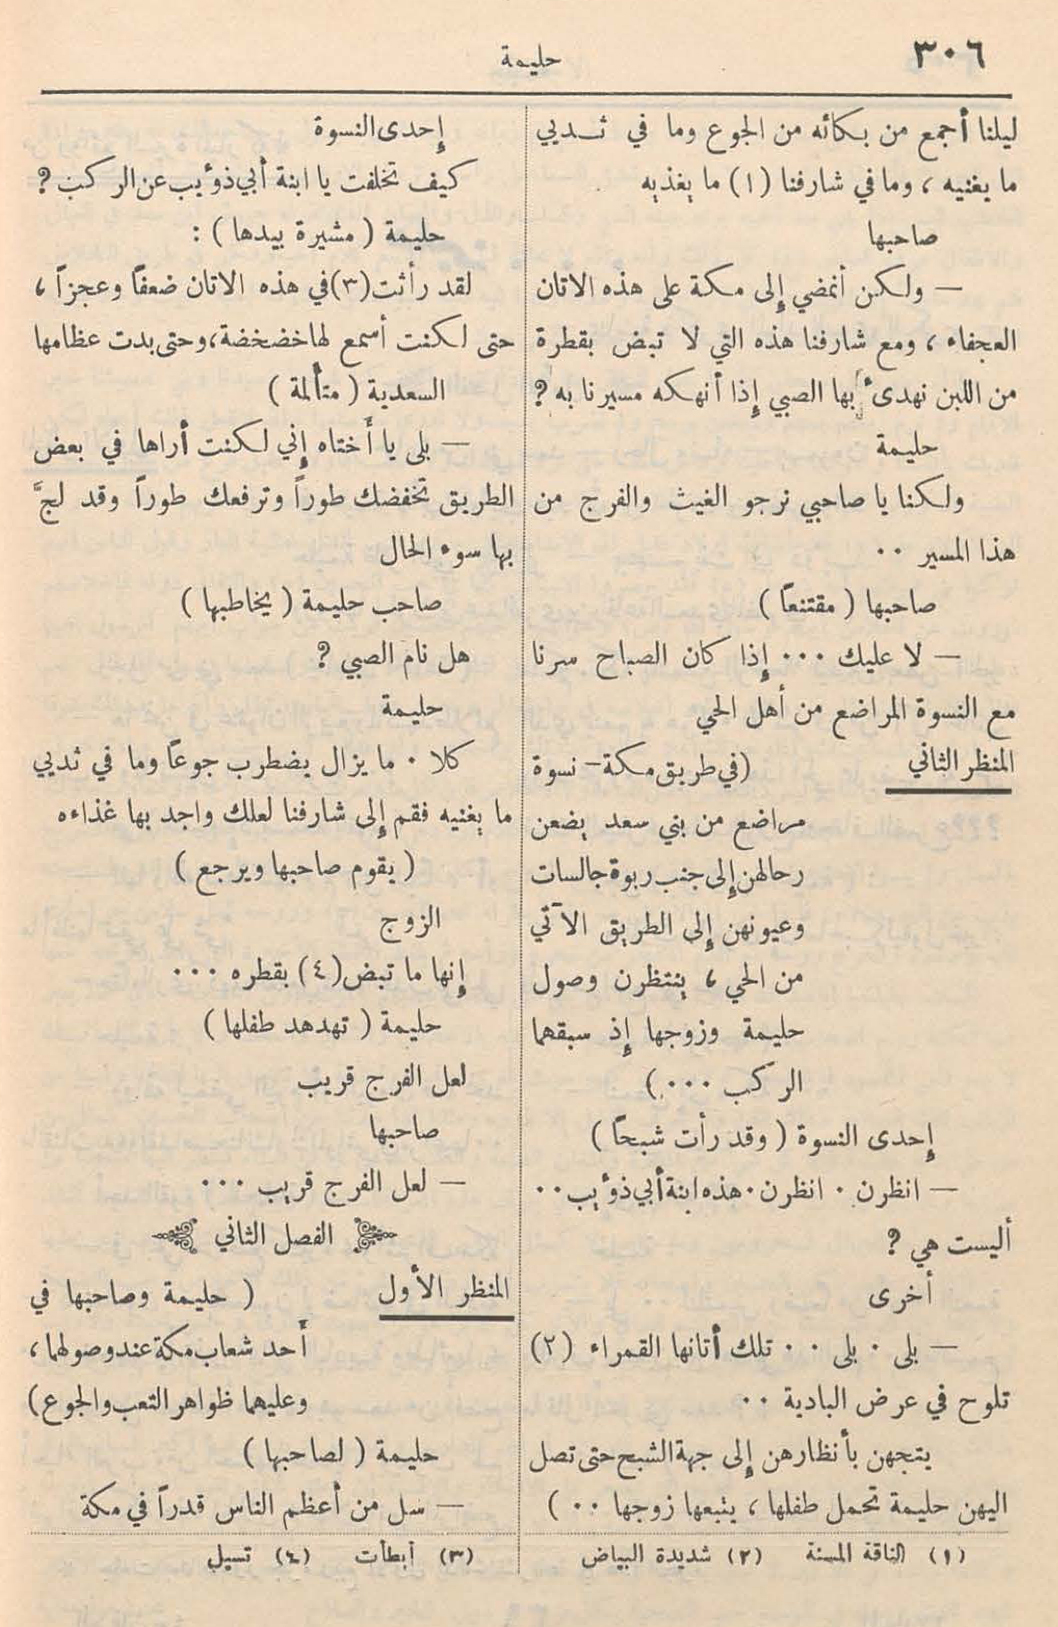 ٣٠٦
حليمة
ليلنا أجمع من بكائه من الجوع وما في ثديي
ما يغنيه ، وما في شارفنا (١) ما يغذيه
صاحبها
— ولكن أنمضي إلى مكة على هذه الاتان
العجفاء ، ومع شارفنا هذه التي لا تبض بقطرة
من اللبن نهدىء بها الصبي إذا أنهكه مسيرنا به ؟
حليمة
ولكنا يا صاحبي نرجو الغيث والفرج من
هذا المسير ..
صاحبها ( مقتنعاً )
— لا عليك ... إذا كان الصباح سرنا
مع النسوة المراضع من أهل الحي
المنظر الثاني (في طريق مكة – نسوة
مراضع من بني سعد يضعن
رحالهن إلى جنب ربوة جالسات
وعيونهن إلى الطريق الآتي
من الحي ، ينتظرن وصول
حليمة وزوجها إذ سبقهما
الركب ... )
إحدى النسوة ( وقد رأت شبحاً )
— انظرن . انظرن . هذه ابنة أبي ذؤيب ..
أليست هي ؟
أخرى
— بلى . بلى .. تلك أتانها القمراء (٢)
تلوح في عرض البادية ..
يتجهن بأنظارهن إلى جهة الشبح حتى تصل
اليهن حليمة تحمل طفلها ، يتبعها زوجها .. )
(١) الناقة المسنة (٢) شديدة البياض
إحدى النسوة
كيف تخلفت يا ابنة أبي ذؤيب عن الركب ؟
حليمة ( مشيرة بيدها ) :
لقد رأثت (٣) في هذه الاتان ضعفاً وعجزاً ،
حتى لكنت أسمع لها خضخضة ، وحتى بدت عظامها
السعدية ( متألمة )
— بلى يا أختاه إني لكنت أراها في بعض
الطريق تخفضك طوراً وترفعك طوراً وقد لجَّ
بها سوء الحال
صاحب حليمة ( يخاطبها )
هل نام الصبي ؟
حليمة
كلا . ما يزال يضطرب جوعاً وما في ثديي
ما يغنيه فقم إلى شارفنا لعلك واجد بها غذاءه
( يقوم صاحبها ويرجع )
الزوج
إنها ما تبض (٤) بقطره ...
حليمة ( تهدهد طفلها )
لعل الفرج قريب
صاحبها
— لعل الفرج قريب ...
الفصل الثاني
المنظر الأول ( حليمة وصاحبها في
أحد شعاب مكة عند وصولهما ،
وعليهما ظواهر التعب والجوع )
حليمة ( لصاحبها )
— سل من أعظم الناس قدراً في مكة
(٣) أبطأت (٤) تسيل